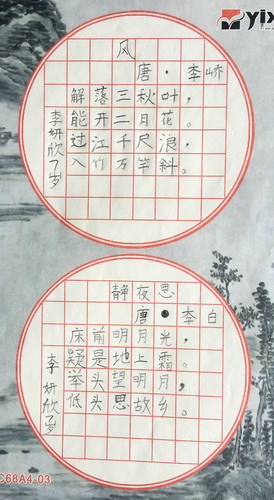 yix
风
唐·李峤
解落三秋叶，
能开二月花。
过江千尺浪，
入竹万竿斜。
李妍欣7岁
静夜思
唐●李白
床前明月光，
疑是地上霜。
举头望明月，
低头思故乡。
李妍欣7岁
C68A4-03